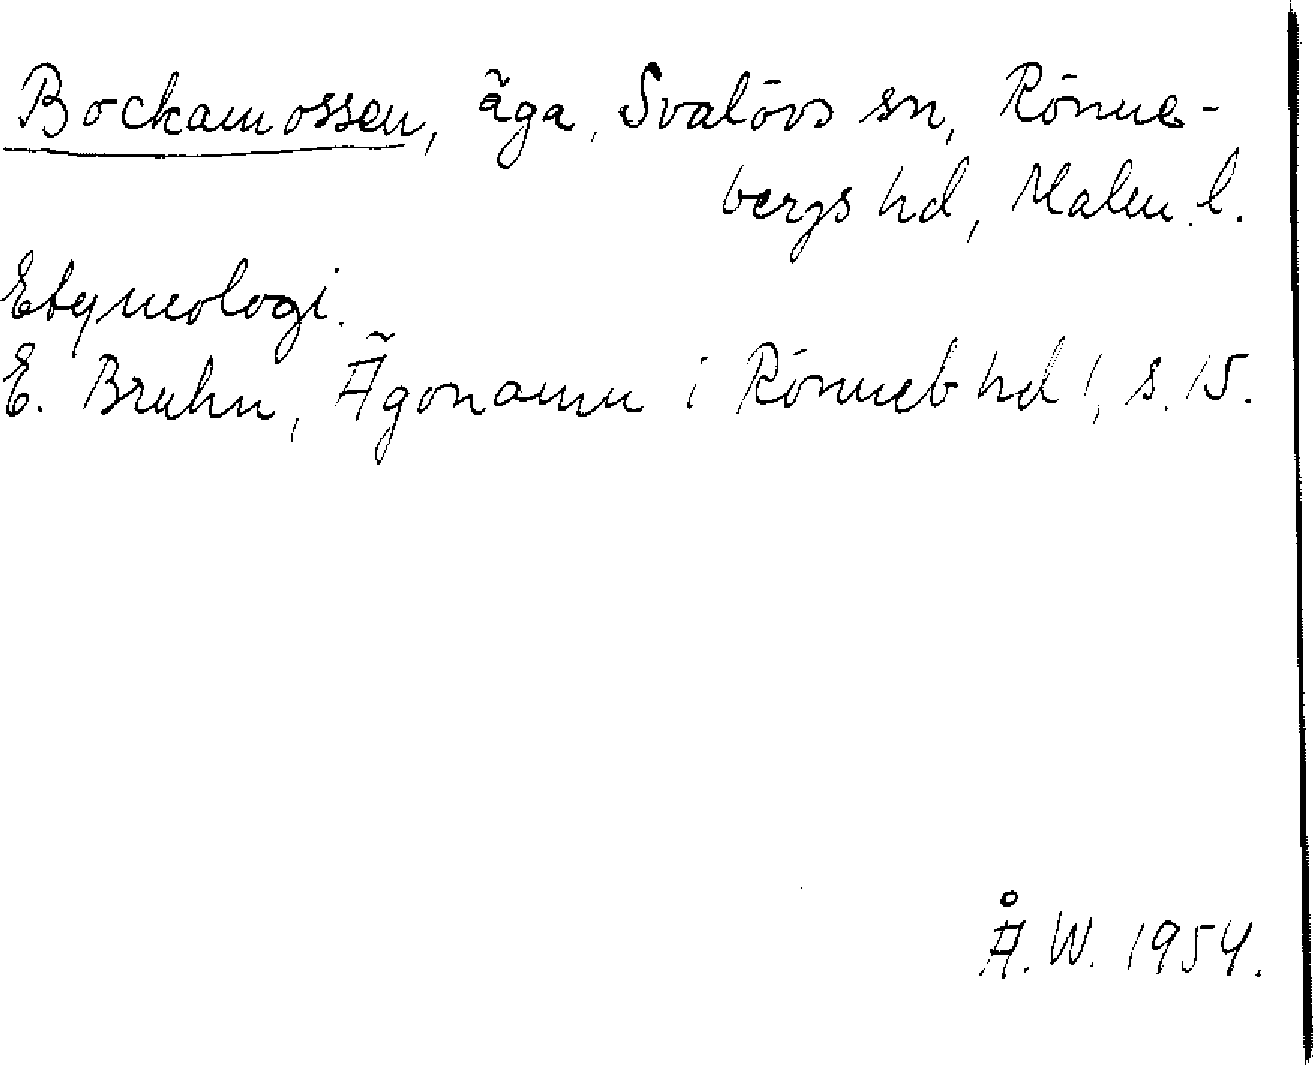 Bockamossen, äga, Svalövs sn, Rönne-
bergs hd, Malm. l.
Etymologi.
E. Bruhn, Ägonamn i Rönneb hd 1, s. 15.
Å. W. 1954.